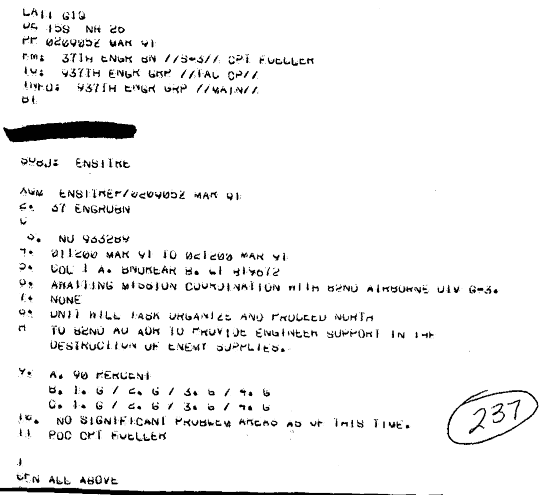 PP 020905Z MAR 91
FM: 37TH ENGR BN //S-3// CPT FUELLER
TO: 937TH ENGR GRP //TAC CP//
INFO: 937TH ENGR GRP //MAIN//
BT
SUBJ: ENSITRE
ENSITREP/020905Z MAR 91
2. 37 ENGRCBN
3. NU 933289
4. 011200 MAR 91 TO 021200 MAR 91
5. COL 1 A. BNDREAR B.
6. AWAITING MISSION COORDINATION WITH 82ND AIRBORNE DIV G-3.
7. NONE
8. UNIT WILL TASK ORGANIZE AND PROCEED NORTH
TO 82ND AD AOR TO PROVIDE ENGINEER SUPPORT IN THE
DESTRUCTION OF ENEMY SUPPLIES.
9. A. 90 PERCENT
B. 1. G / 2. G / 3. G / 4. G
C. 1. G / 2. G / 3. G / 4. G
10. NO SIGNIFICANT PROBLEM AREAS AS OF THIS TIME.
11 POC CPT FUELLER
237
ALL ABOVE